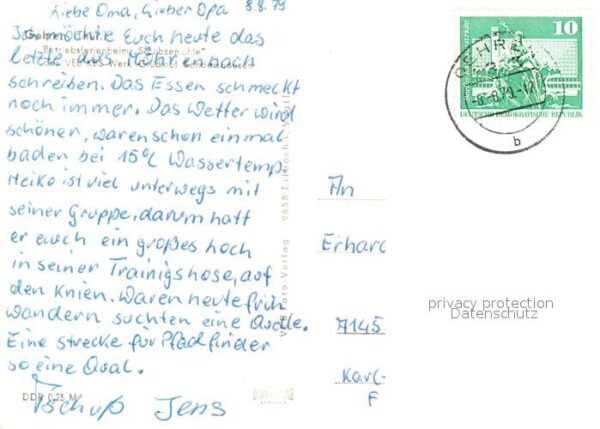 Liebe Oma, Lieber Opa 8.8.79
Ich möchte Euch heute das
letzte aus Möhrenbach
schreiben. Das Essen schmeckt
noch immer. Das Wetter wird
schöner, waren schon einmal
baden bei 15°C Wassertemp.
Heiko ist viel unterwegs mit
seiner Gruppe, darum hatt
er auch ein großes hoch
in seiner Trainigshose, auf
den Knien. Waren heute früh
wandern suchten eine Quelle.
Eine strecke für Pfadfinder
so eine Qual.
Tschuß Jens
Gehren Thür
Betriebsferienheim "Schobsemühle"
DDR 0,25 M
Foto-Verlag 9658
An
Erhard
7145
Karl-
F
10
DEUTSCHE DEMOKRATISCHE REPUBLIK
GEHREN
b
privacy protection
Datenschutz